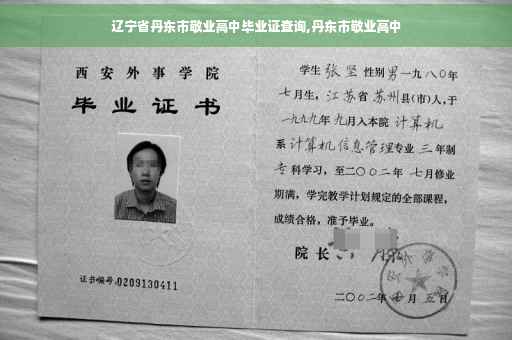 辽宁省丹东市敬业高中毕业证查询,丹东市敬业高中
西安外事学院
毕业证书
证书编号:0209130411
学生 张坚 性别 男 一九八〇年
七月生，江苏省 苏州 县(市)人，于
一九九九年 九月入本院 计算机
系 计算机信息管理 专业 三 年制
专 科学习，至二〇〇二年 七月修业
期满，学完教学计划规定的全部课程，
成绩合格，准予毕业。
院 长
二〇〇二年 月 五 日